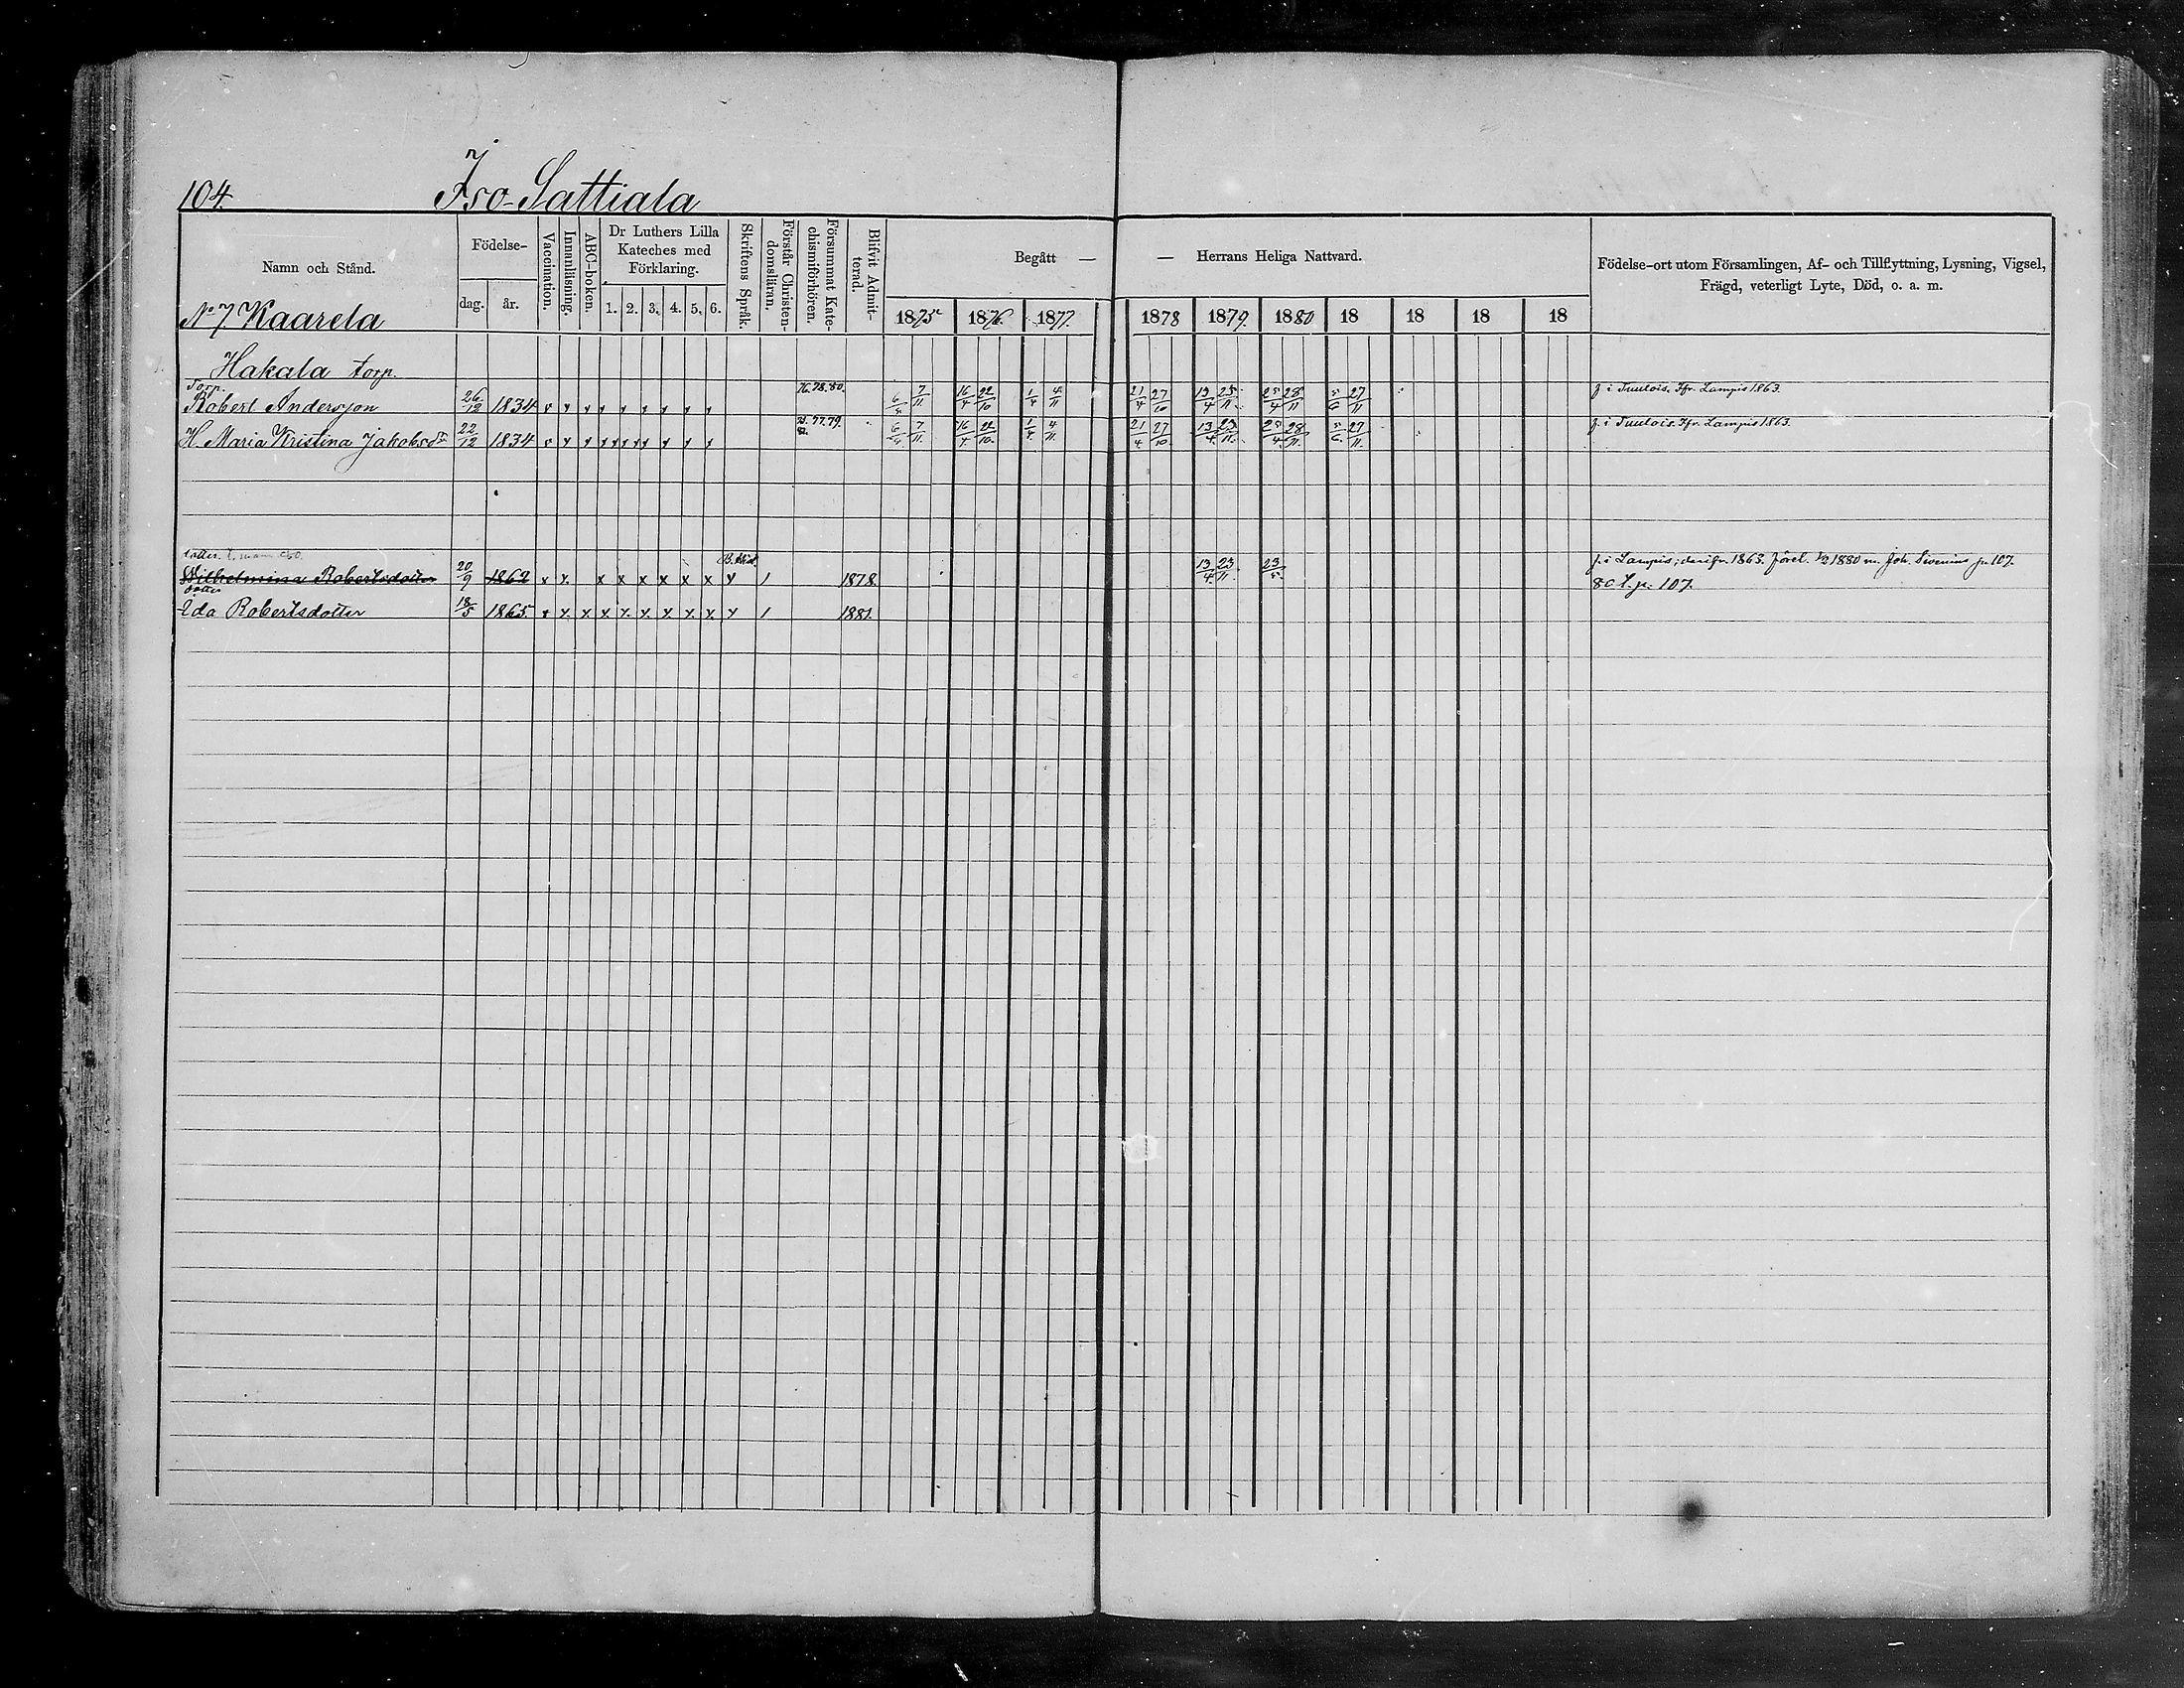 104. Iso-Sattiala
Namn och Stånd.
Födelse-
dag. år.
Vaccination.
Innanläsning.
ABC-boken.
Dr Luthers Lilla
Kateches med
Förklaring.
1. 2. 3. 4. 5. 6.
Skriftens Språk.
Förstår Christen-
domsläran.
Försummat Kate-
chismiförhören.
Blifvit Admit-
terad.
Begått — — Herrans Heliga Nattvard.
1875 1876. 1877. 1878 1879. 1880 18 18 18 18
Födelse-ort utom Församlingen, Af- och Tillflyttning, Lysning, Vigsel,
Frägd, veterligt Lyte, Död, o. a. m.
No 7. Kaarela
Hakala torp.
Torp. 76. 78. 80.
Robert Andersson 26/12 1834 x x x x x x x x x 6/4 7/11. 16/4 22/10 1/4 4/11 21/4 27/10 13/4 23/11. 25/4 28/11 5/6 27/11 f. i Tuulois. Ifr. Lampis 1863.
77. 79.
H. Maria Kristina Jakobsdr 22/12 1834 x x x x x x x x x 6/4 7/11. 16/4. 22/10. 1/4. 4/11. 21/4. 27/10 13/4. 23/11. 25/4. 28/11. 5/6. 27/11. f. i Tuulois. Ifr. Lampis 1863.
dotter. B. hist.
Wilhelmina Robertsdotter 20/9 1862 x x. x x x x x x x 1 1878. 13/4. 23/11. 23/5. f. i Lampis; därifr. 1863. Förel. 1/2 1880 m. Joh. Sivenius p. 107.
80 t. p. 107.
dotter
Ida Robertsdotter 18/5 1865. x x. x x. x. x. x. x. x. x 1 1881.